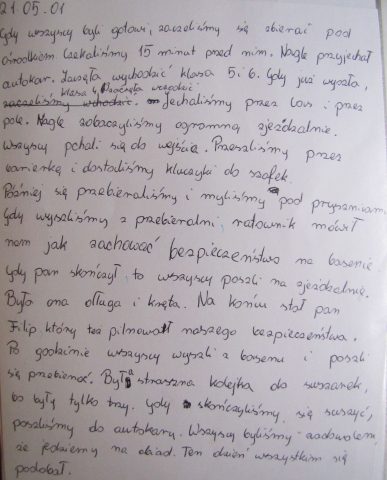 21.05.01
Gdy wszyscy byli gotowi, zaczeliśmy się zbierać pod
ośrodkiem. Czekaliśmy 15 minut przed nim. Nagle przyjechał
autokar. Zaczęła wychodzić klasa 5 i 6. Gdy już wyszła,
klasa 4 zaczęła wchodzić.
zaczeliśmy wchodzić. Jechaliśmy przez las i przez
pole. Nagle zobaczyliśmy ogromną zjeżdżalnie.
Wszyscy pchali się do wejścia. Przeszliśmy przez
barierkę i dostaliśmy kluczyki do szafek.
Później się przebieraliśmy i myliśmy pod prysznicami
Gdy wyszliśmy z przebieralni, ratownik mówił
nam jak zachować bezpieczeństwo na basenie
Gdy pan skończył, to wszyscy poszli na zjeżdżalnię.
Była ona długa i kręta. Na końcu stał pan
Filip, który też pilnował naszego bezpieczeństwa.
Po godzinie wszyscy wyszli z basenu i poszli
się przebierać. Była straszna kolejka do suszarek,
bo były tylko trzy. Gdy skończyliśmy się suszyć,
poszliśmy do autokaru. Wszyscy byliśmy zadowoleni,
że jedziemy na obiad. Ten dzień wszystkim się
podobał.